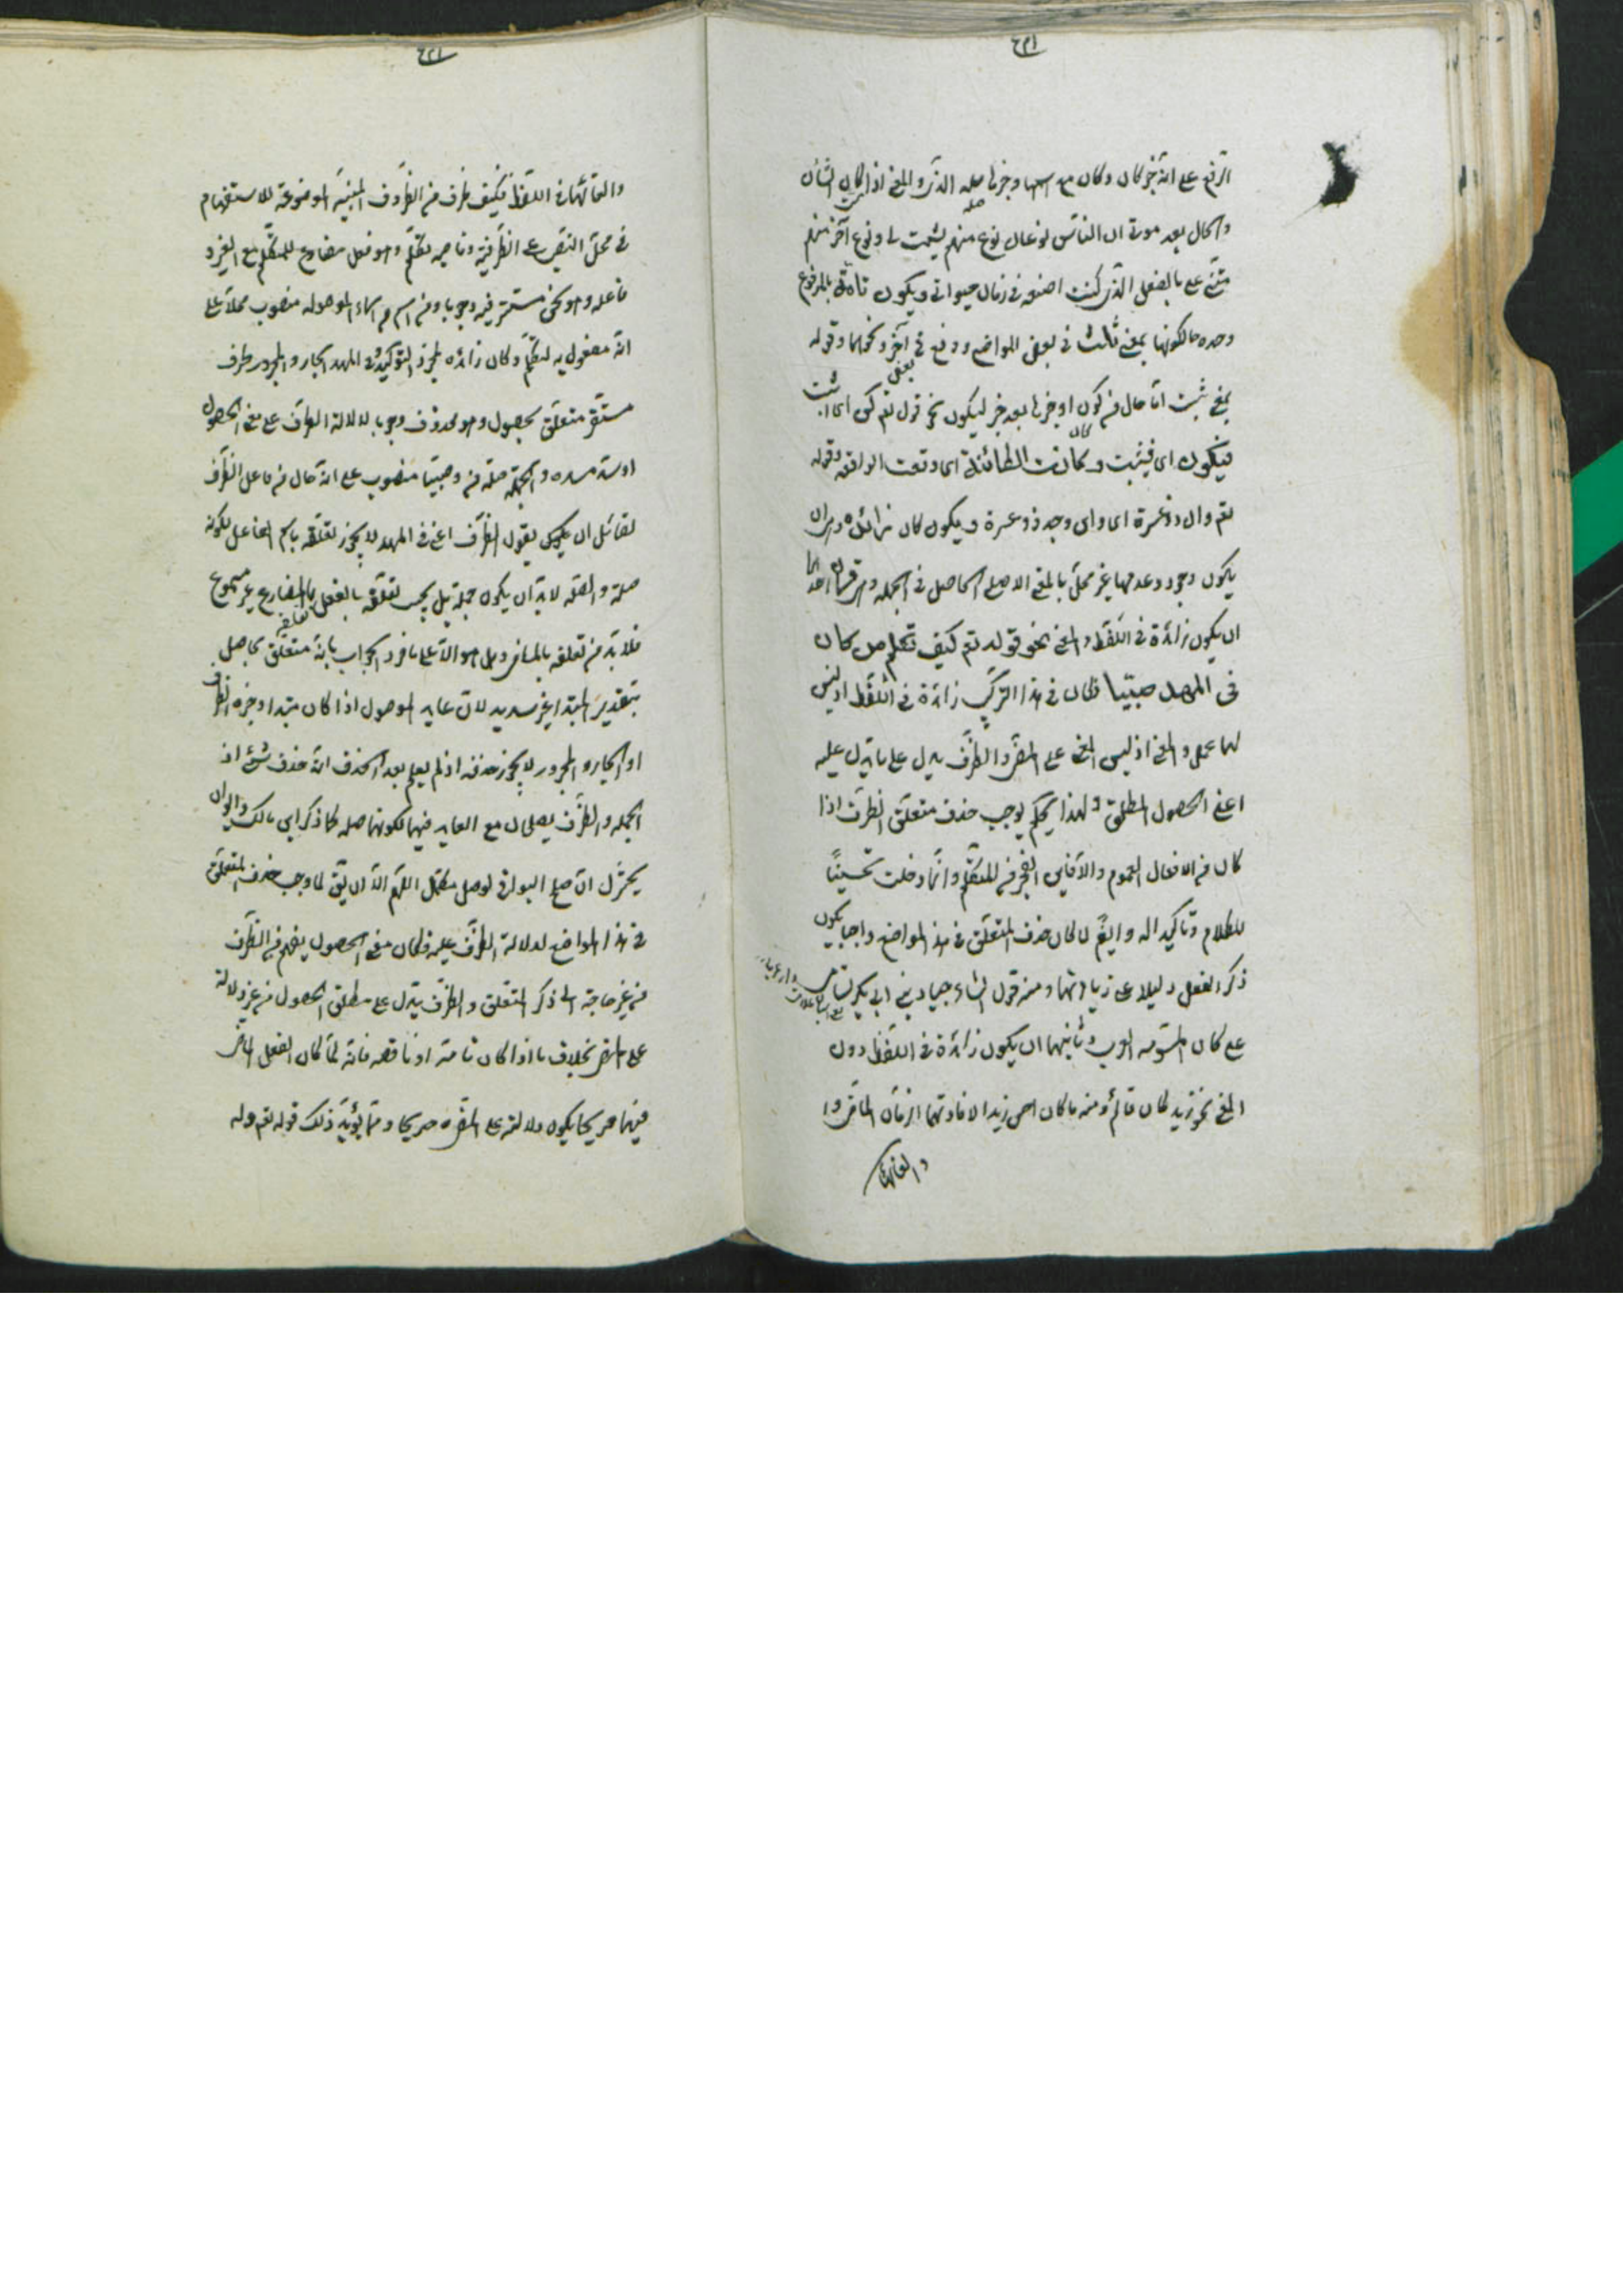 الرفع على انه خبر كان وكان مع اسمها وخبرها صلة الذى والمعنى اذا كان الشان
والحال بعد موتى ان الناس نوعان نوع منهم يشمت لى ونوع آخر منهم
مثنى على بالفعل الذى كنت اصنعه فى زمان حيواتى ويكون تامة بالمرفوع
وحده حالكونها بمعنى ثابت فى بعض المواضع ووقع فى آخر ونحوهما وقوله
بمعنى ثبت اما حال من كون او خبرها بعد خبر ليكون نحو قوله تعم كن اى اثبت
فيكون اى فيثبت وكانت الكائنة اى وقعت الواقعة وقوله
تعم وان كان ذو عسرة اى وان وجد ذو عسرة ويكون كان زائدة وهى ان
يكون وجود وعدمها غير مخل بالمعنى الاصلى الحاصل فى الجملة وهى قسمان احدهما
ان يكون زائدة فى اللفظ والمعنى نحو قوله تعم كيف نكلم من كان
فى المهد صبيا فكان فى هذا التركيب زائدة فى اللفظ اذ ليس
لها عمل والمعنى اذ ليس المعنى على المضى والظرف يدل على ما تدل عليه
اعنى الحصول المطلق ولهذا يحكم بوجوب حذف متعلق الظرف اذا
كان من الافعال العموم وانما دخلت تحسينا
للكلام وتاكيدا له وايضا لما كان حذف المتعلق فى هذه المواضع واجبا يكون
ذكر الفعل دليلا على زيادتها ومنه قول الشاعر جياد بنى ابى بكر تسامى
على كان المسومة العرب وثانيهما ان يكون زائدة فى اللفظ دون
المعنى نحو زيد كان قائم ومنه ما كان احسن زيدا لافادتها الزمان الماضى و
والغائها
والغائها فى اللفظ فكيف ظرف من الظروف المبنية الموضوعة للاستفهام
فى محل النصب على الظرفية وناصبه نكلم وهو فعل مضارع للمتكلم مع الغير و
فاعله وهو نحن مستتر فيه وجوبا ومن اسم من اسماء الموصولة منصوب محلا على
انه مفعول به لنكلم وكان زائدة لمجرد التوكيد وفى المهد الجار والمجرور ظرف
مستقر متعلق بحصول وهو محذوف وجوبا لدلالة الظرف على معنى الحصول
او سد مسده والجملة صلة من وصبيا منصوب على انه حال من فاعل الظرف
لقائل ان يقول الظرف اعنى فى المهد لا يجوز تعلقه باسم الفاعل لكونه
صلة والصلة لابد ان يكون جملة بل يجب تعلقه بالفعل تعلقه بالمضارع غير مسموع
فلابد من تعلقه بالماضى وهل هو الا على ما فر والجواب بانه متعلق بحاصل
بتقدير المبتدا غير سديد لان عايد الموصول اذا كان مبتدا وخبره الظرف
او الجار والمجرور لا يجوز حذفه اذ لم يعلم بعد الحذف انه حذف شئ اذ
الجملة والظرف يصلحان مع العايد فيهما لكونهما صلة كما ذكر ابن مالك
اللهم الا ان يق لما وجب حذف المتعلق
فى هذا المواضع لدلالة الظرف عليه فكان معنى الحصول يفهم من الظرف
من غير حاجة الى ذكر المتعلق والظرف يدل على مطلق الحصول من غير دلالة
على المضى بخلاف ما اذا كان تامة او ناقصة فانه لما كان الفعل الماضى
فيهما صريحا يكون دلالته على المضى صريحا ومما يؤيد ذلك قوله تعم وله